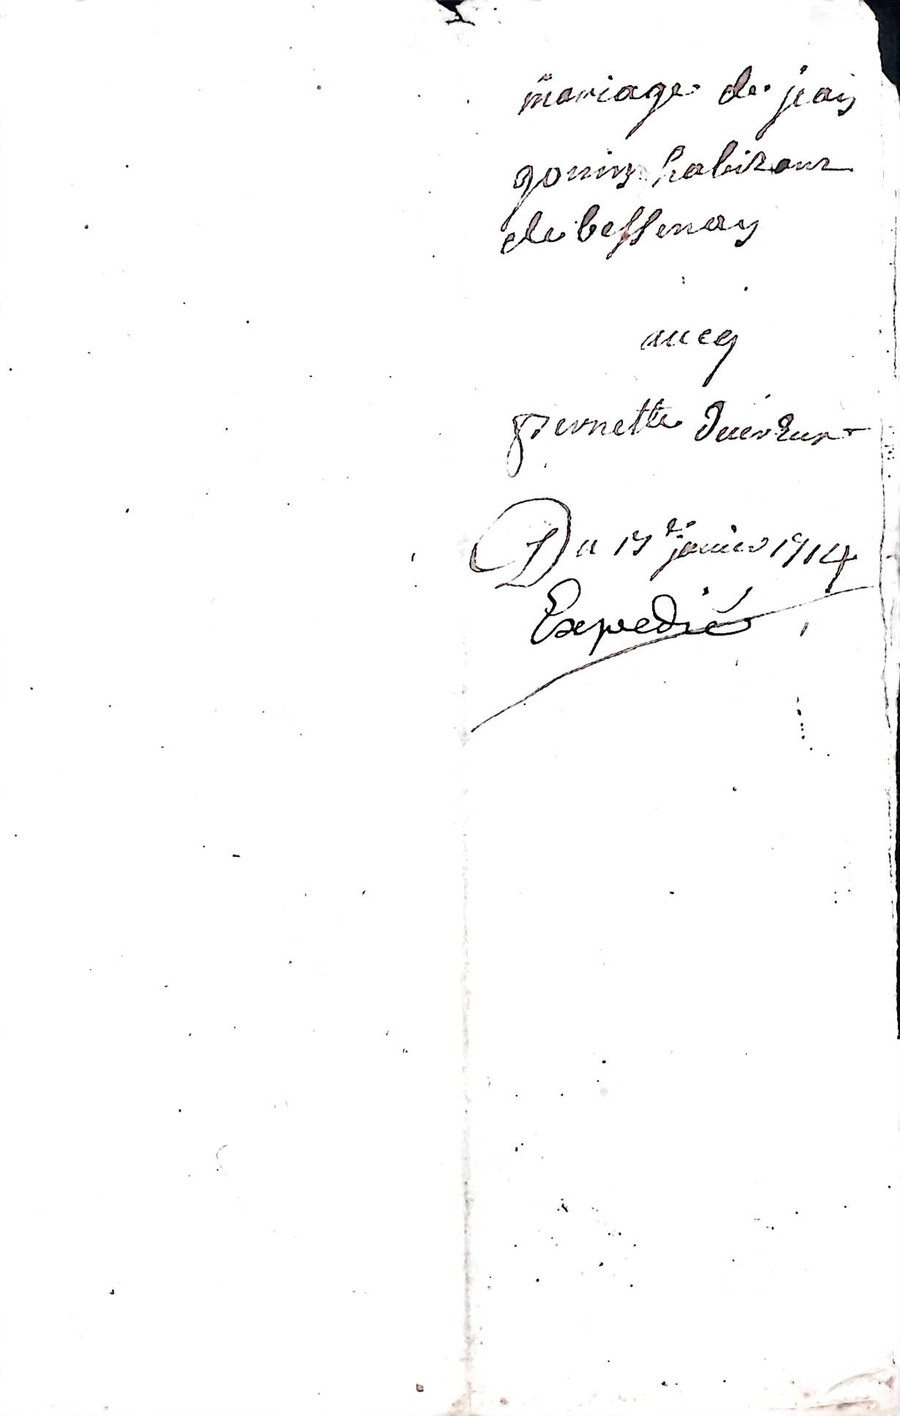 mariage de jean
gonin habitant
de bessenay
avecq
pierrette
Du 17e janvier 1714
Expedié